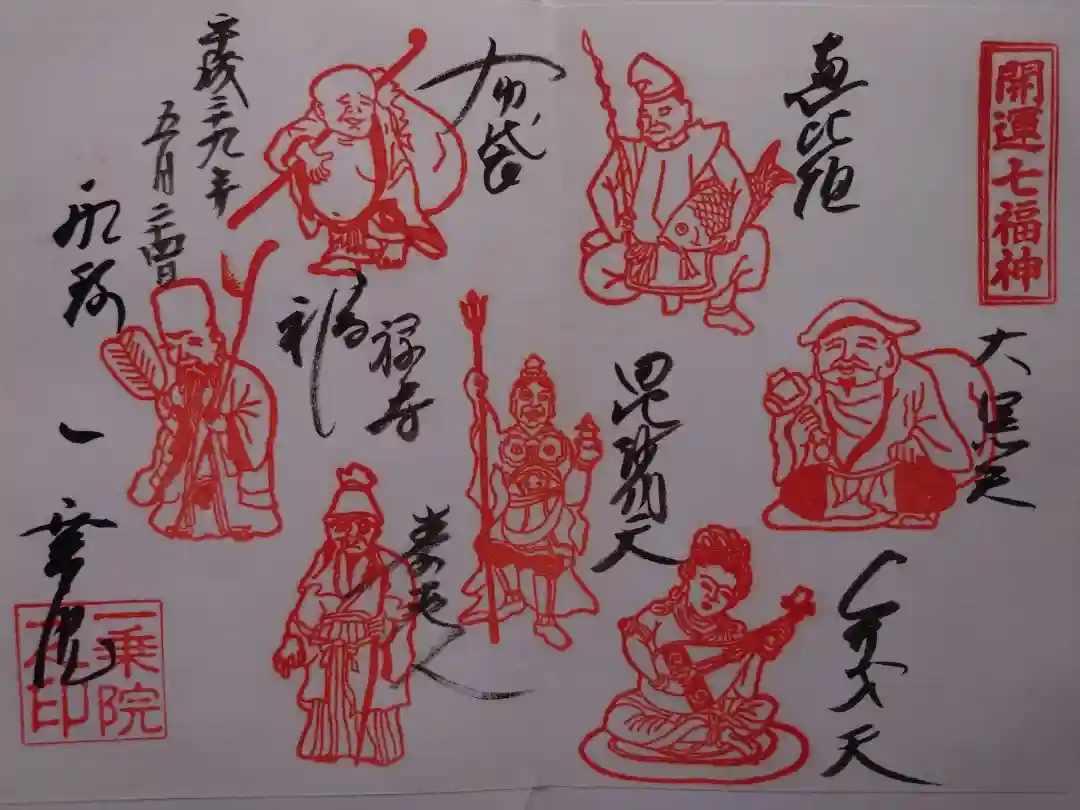 開運七福神
恵比須
大黒天
布袋
毘沙門天
弁才天
福禄寿
寿老人
平成二十九年
五月二十四日
一乗院
一乗院
印